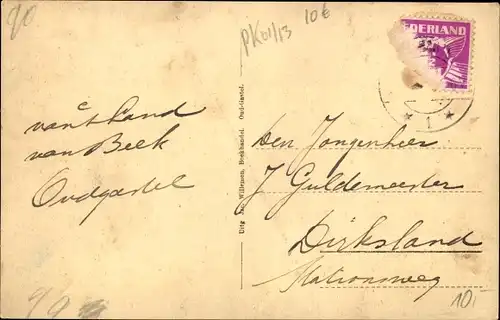 90
PK01/13
10€
DERLAND
van
van Beek
Oudgastel
Uitg Jac. Willemen, Boekhandel, Oud-Gastel.
Den Jongenheer
J Guldemeester
Dirksland
Stationsweg
* 1 *
10.-